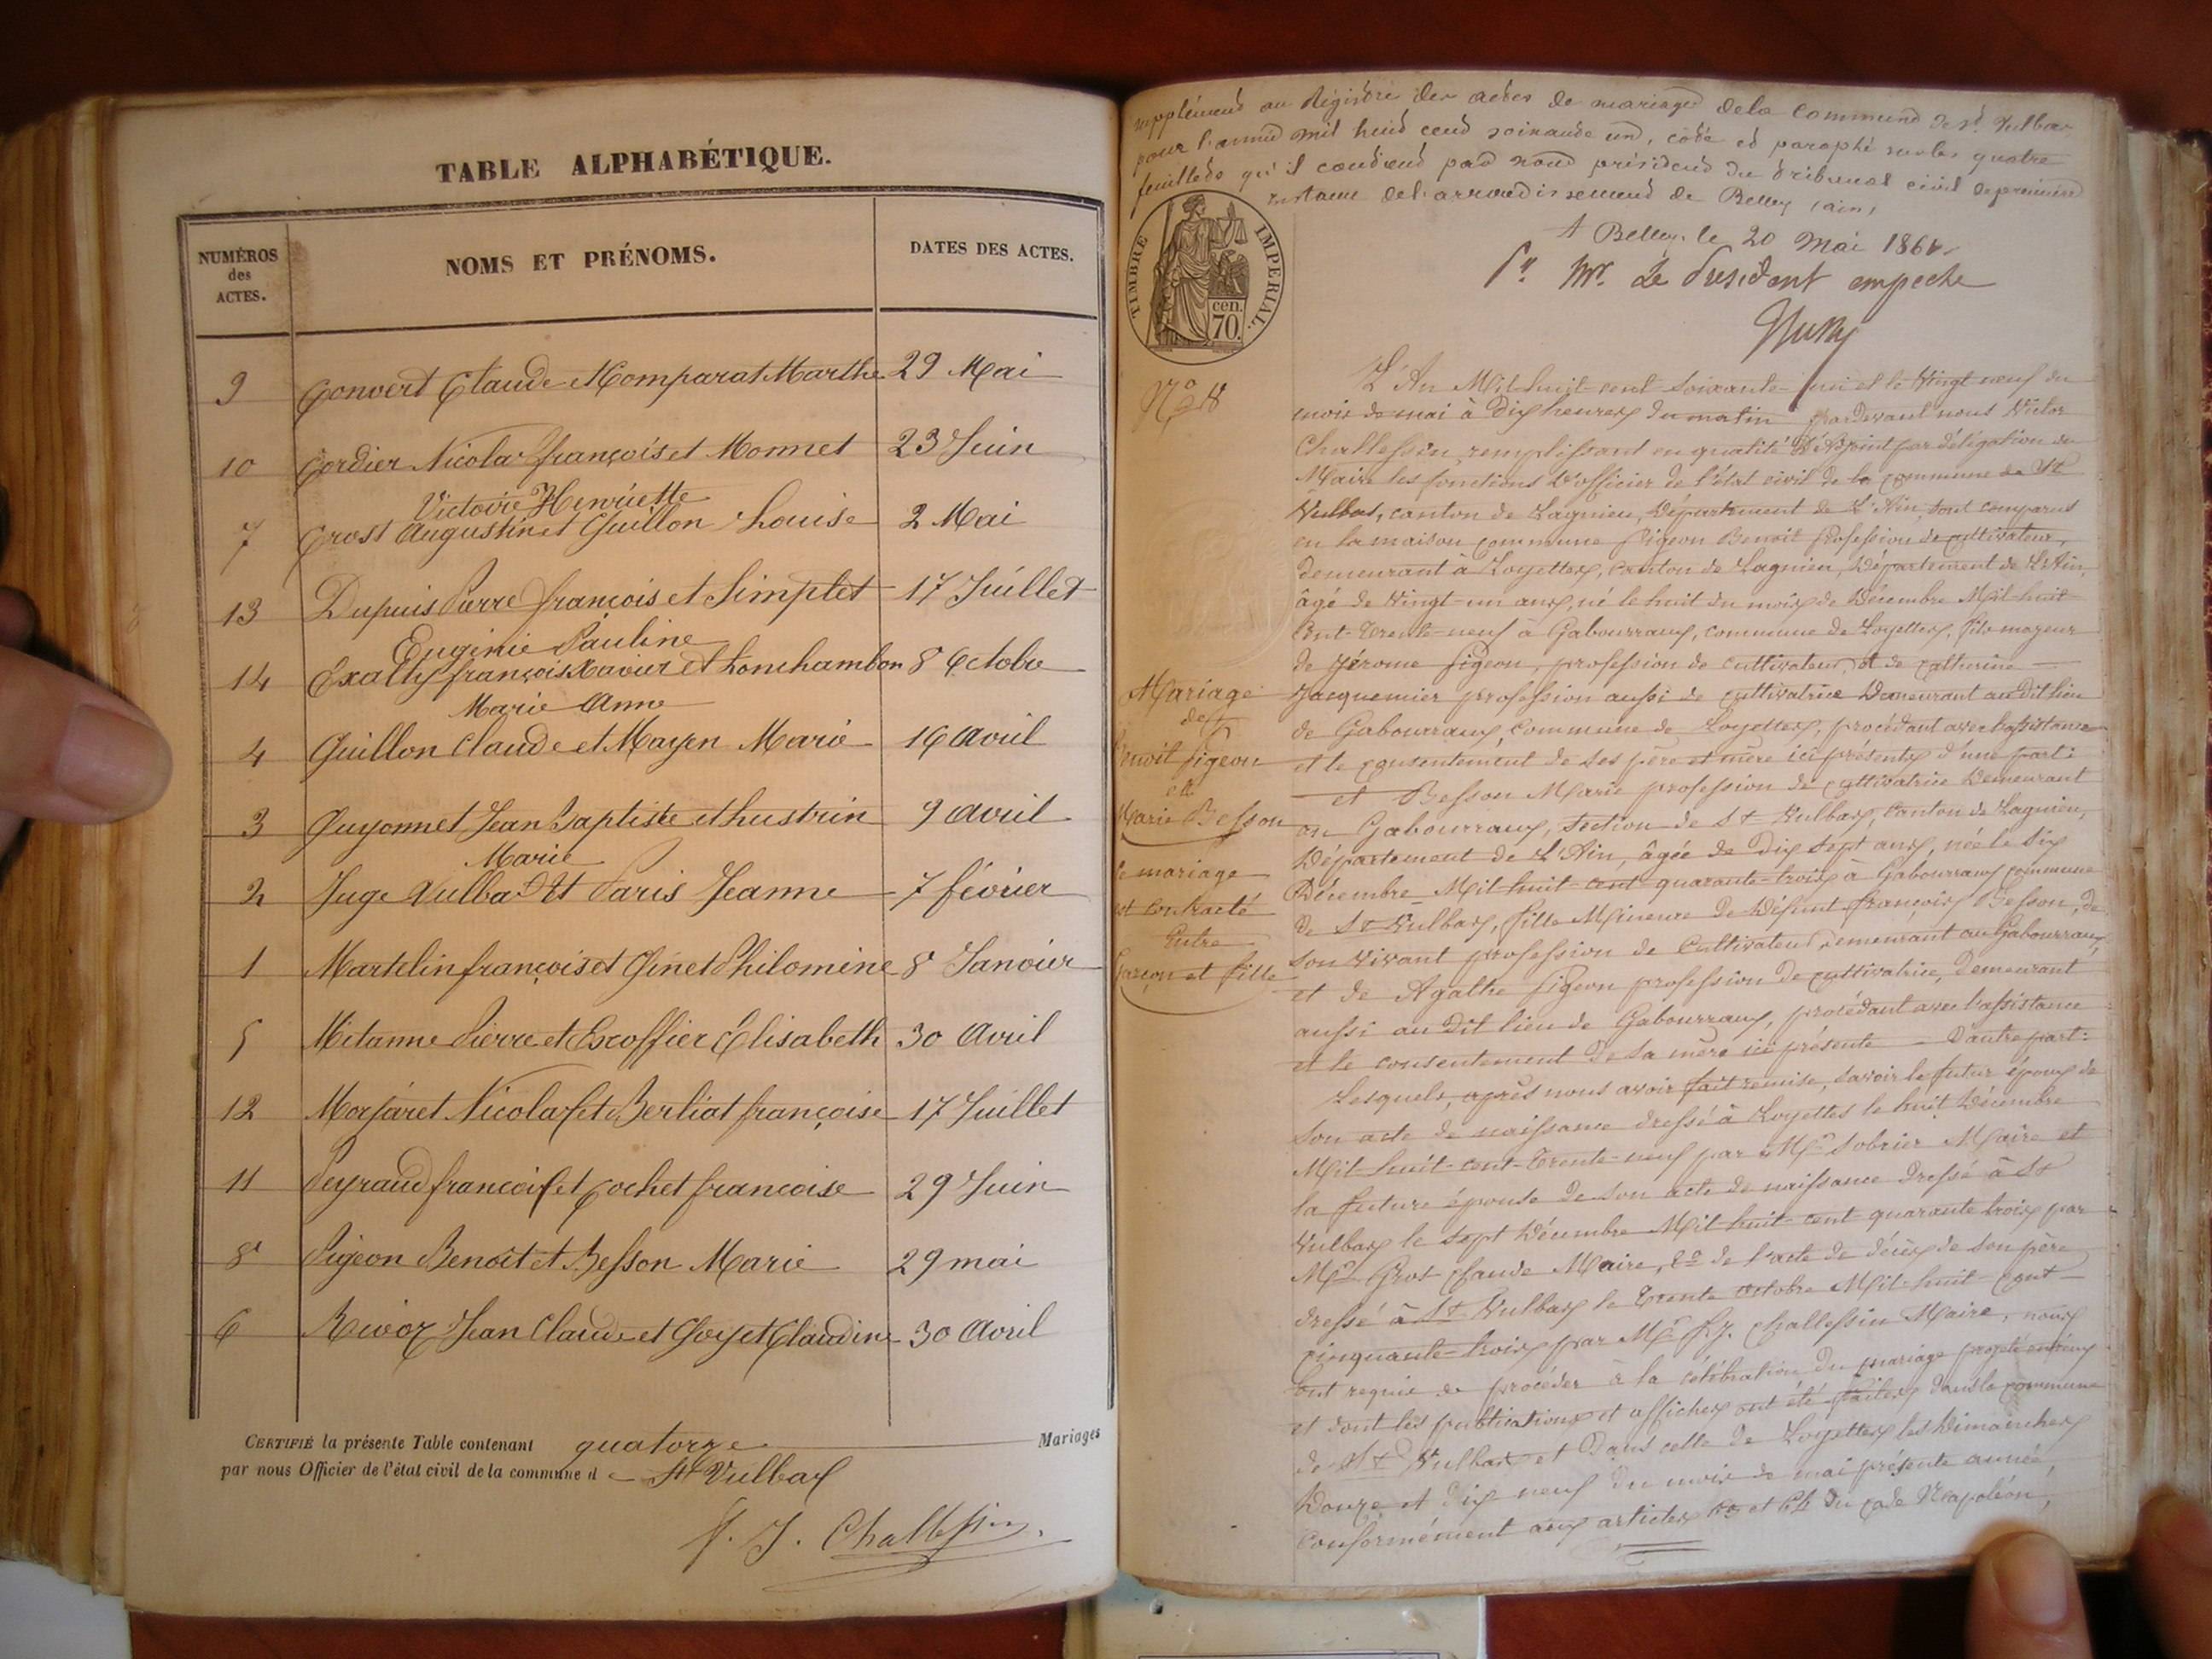 TABLE ALPHABÉTIQUE.
NUMÉROS
des
ACTES.
NOMS ET PRÉNOMS.
DATES DES ACTES.
9 Convert Claude et Comparat Marthe 29 Mai
10 Cordier Nicolas françois et Monnet 23 Juin
Victoire Henriette
7 Crost Augustin et Guillon Louise 2 Mai
13 Dupuis Pierre françois et Simplet 17 Juillet
Euginie Pauline
14 françois Xavier et Lonchambon 8 Octobre
Marie Anne
4 Guillon Claude et Mayen Marie 16 avril
3 Guyonnet Jean Baptiste et 9 avril
Marie
2 Juge Vulbas Et Paris Jeanne 7 février
1 Martelin françois et Ginet Philomine 8 Janvier
5 Mitanne Pierre et Escoffier Élisabeth 30 Avril
12 Morjaret Nicolas et Berliat françoise 17 Juillet
11 Peyraud francois et Cochet francoise 29 Juin
8 Pigeon Benoit et Besson Marie 29 mai
6 Rivoz Jean Claude et Goyet Claudine 30 Avril
CERTIFIÉ la présente Table contenant quatorze Mariages
par nous Officier de l'état civil de la commune d e St Vulbas
f. J. Challessin
supplément au Régistre des actes de mariage de la commune de St Vulbas
pour l'année mil huit cent soixante un, coté et paraphé sur les quatre
feuillets qu'il contient par nous président du tribunal civil de première
instance de l'arrondissement de Belley (ain)
A Belley, le 20 Mai 1861
Pr Mr. Le President empeche
TIMBRE IMPERIAL.
70. cen.
N° 8
L'An Mil huit cent soixante un et le Vingt neuf du
mois de mai à Dix heures du matin pardevant nous Victor
Challessin, remplissant en qualité D'Adjoint par délégation du
Maire les fonctions D'officier de l'état civil de la commune de St
Vulbas, canton de Lagnieu, Département de L'Ain, sont comparus
en la maison commune Pigeon Benoit Profession de cultivateur,
demeurant à Loyettes, canton de Lagnieu, Département de L'Ain,
âgé de Vingt-un ans, né le huit du mois de Décembre Mil-huit
Cent-Trente-neuf à Gabourraux, commune de Loyettes, fils majeur
de Jérome Pigeon, profession de cultivateur et de Catherine
Jacquemier profession aussi de cultivatrice Demeurant au Dit lieu
de Gabourraux, commune de Loyettes, procédant avec l'assistance
et le consentement de ses père et mère ici présents d'une part:
et Besson Marie profession de cultivatrice Demeurant
au Gabourraux, section de St Vulbas, canton de Lagnieu,
Département de L'Ain, âgée de Dix sept ans, née le six
Décembre Mil huit cent quarante trois à Gabourraux commune
de St Vulbas, fille Mineure de Défunt François Besson, de
son vivant profession de Cultivateur, demeurant au Gabourraux,
et de Agathe Pigeon profession de cultivatrice, demeurant
aussi au Dit lieu de Gabourraux, procédant avec l'assistance
et le consentement de sa mère ici présente D'autre part:
Mariage
de
Benoit Pigeon
et
Marie Besson
le mariage
est contracté
Entre
Garçon et fille
Lesquels, après nous avoir fait remise, savoir le futur époux de
son acte de naissance dressé à Loyettes le huit Décembre
Mil-huit-cent-Trente-neuf par Mr Sobrier Maire et
la future épouse de son acte de naissance Dressé à St
Vulbas le sept Décembre Mil huit-cent quarante trois par
Mr Gros Claude Maire, 2° de l'acte de décès de son père
dressé à St Vulbas le Trente octobre Mil-huit-cent
cinquante-trois par Mr f.J. Challessin Maire, nous
ont requis de procéder à la célébration du mariage projeté entr'eux
et dont les publications et affiches ont été faites dans la commune
de St Vulbas et Dans celle de Loyettes les Dimanches
Douze et Dix neuf du mois de mai présente année,
Conformément aux articles 63 et 64 du code Napoléon,